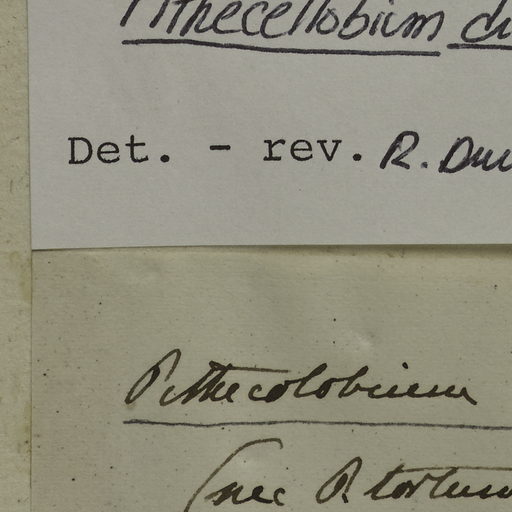 Pithecellobium
Det. - rev. R.
Pithecolobium
(nec P. tortum